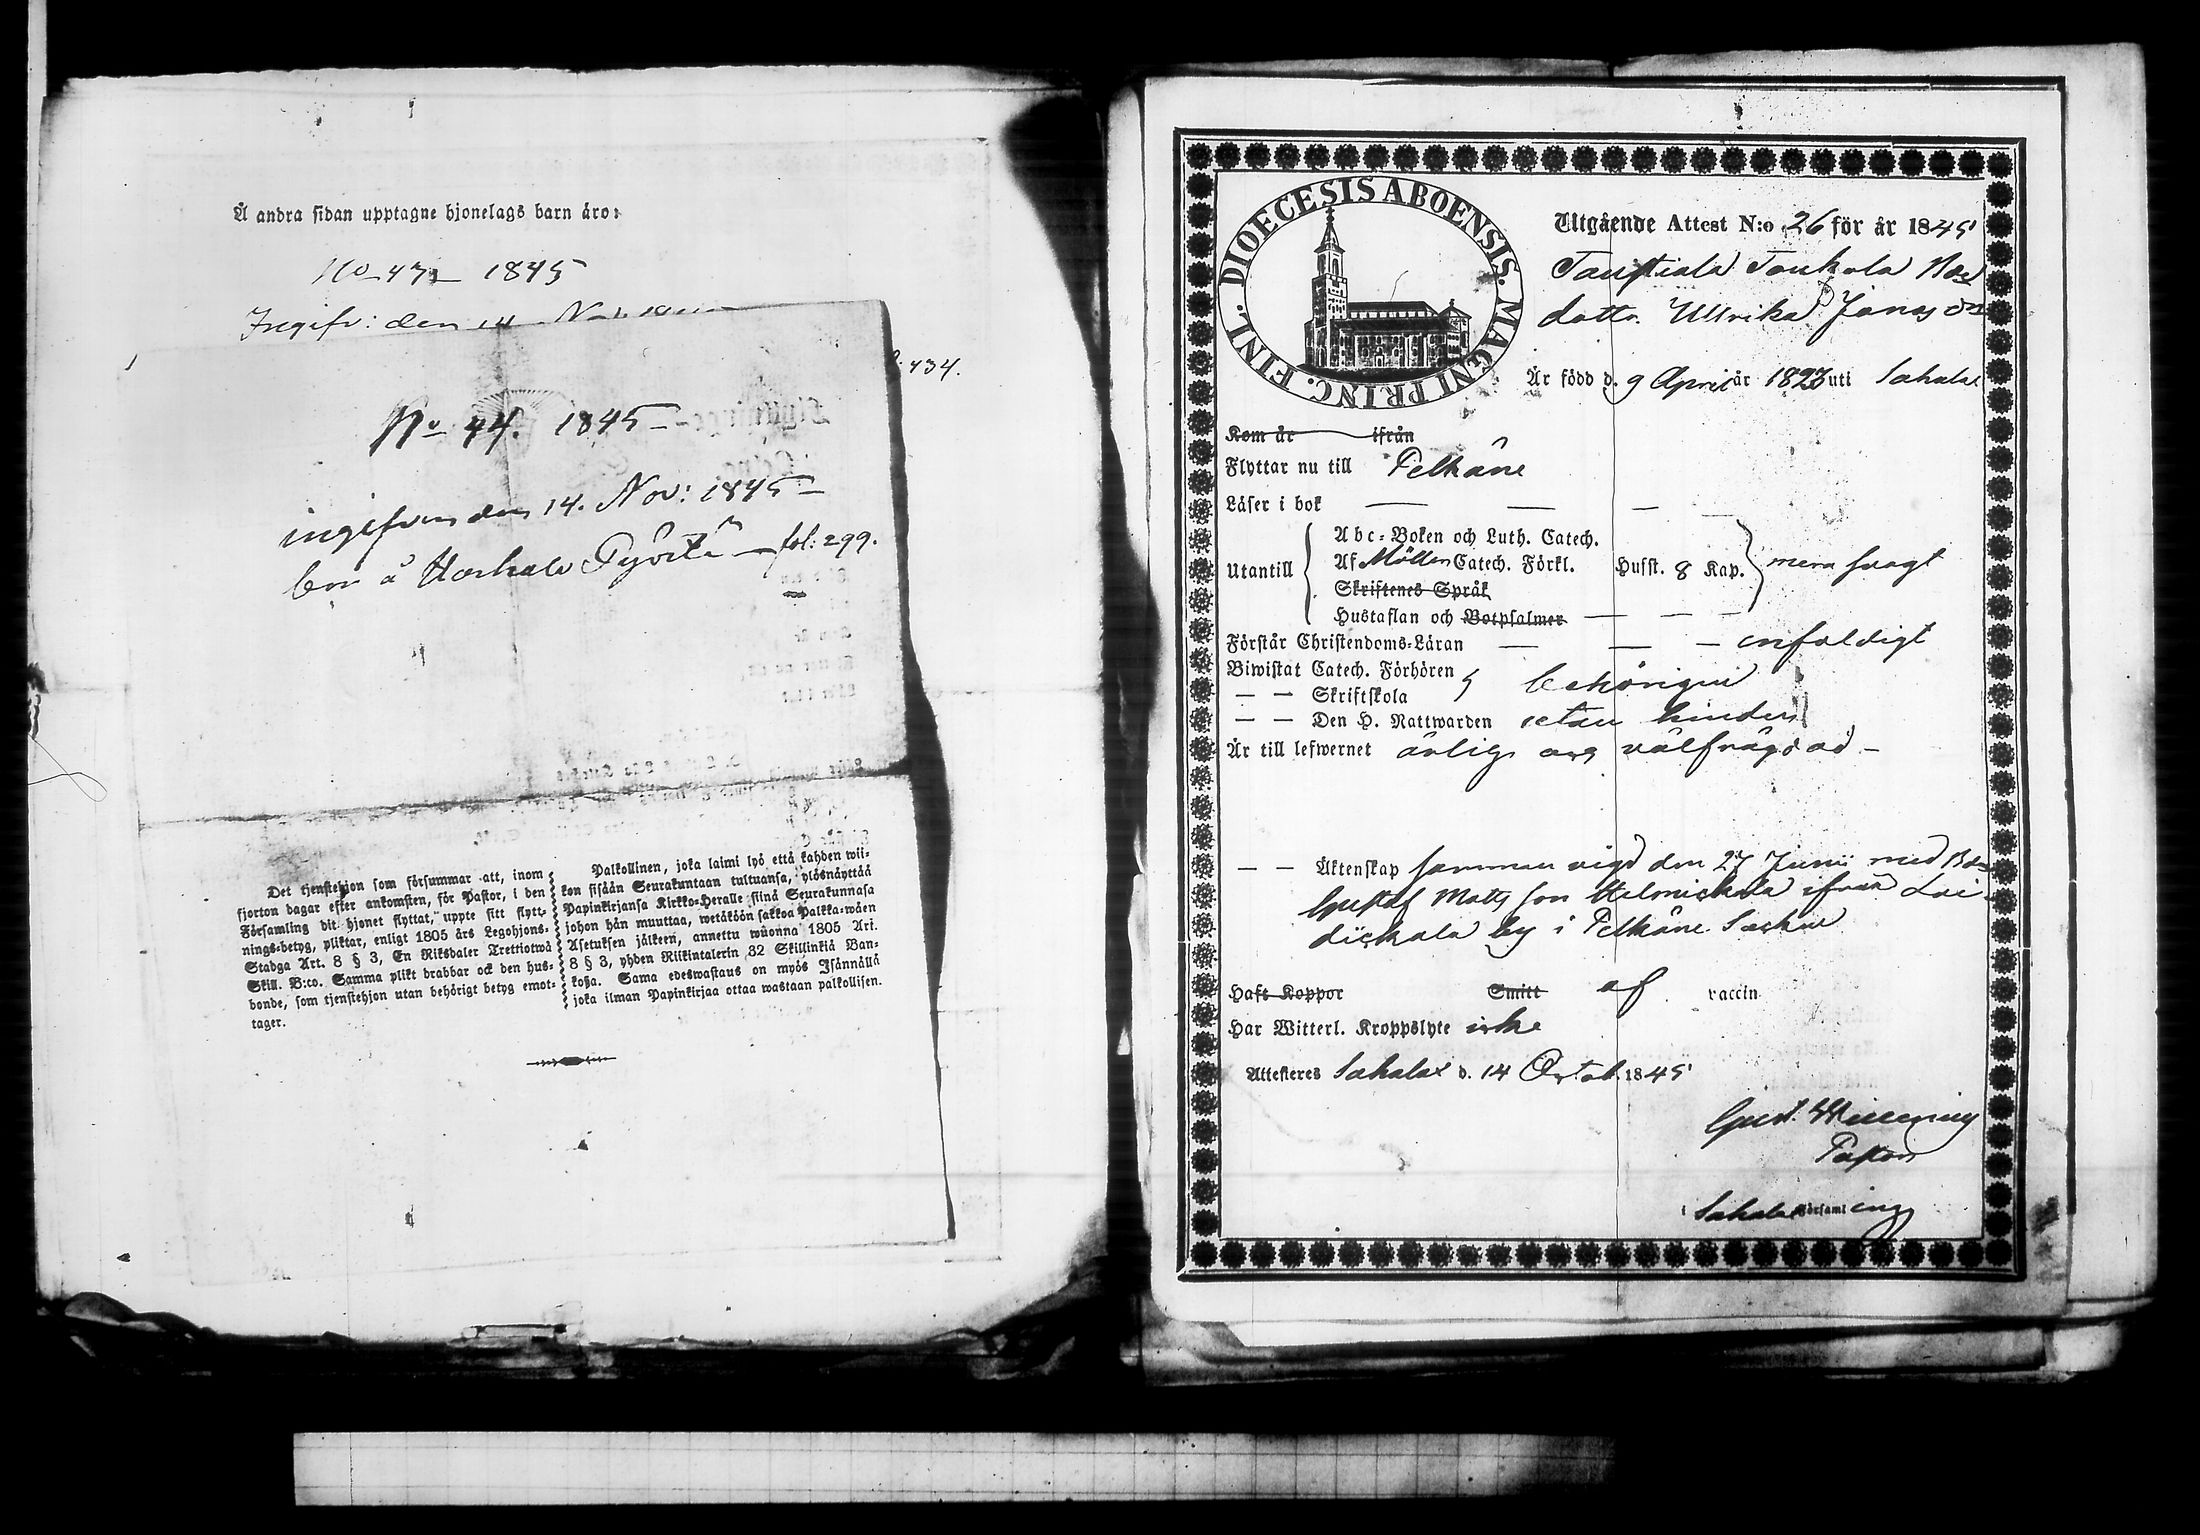 Å andra sidan upptagne hjonelags barn äro:
No 43 1845
Ingifv: den 14 Nov. 18
434.
No 44. 1845
ingifven den 14. Nov: 1845
bor å fol: 299.
Det tjenstehjon som försummar att, inom
fjorton dagar efter ankomsten, för Pastor, i den
Församling dit hjonet flyttat, uppte sitt flytt-
nings-betyg, pliktar, enligt 1805 års Legohjons-
Stadga Art. 8 § 3, En Riksdaler Trettiotwå
Skill. B:co. Samma plikt drabbar ock den hus-
bonde, som tjenstehjon utan behörigt betyg emot-
tager.
Palkollinen, joka laimi lyö että kahden wii-
kon sisään Seurakuntaan tultuansa, ylösnäyttää
Papinkirjansa Kirkko-Heralle siinä Seurakunnasa
johon hän muuttaa, wetäköön sakkoa Palkka-wäen
Asetuksen jälkeen, annettu wuonna 1805 Art.
8 § 3, yhden Riikintalerin 32 Skillinkiä Ban-
kosa. Sama edeswastaus on myös Isännällä
joka ilman Papinkirjaa ottaa wastaan palkollisen.
DIOECESIS ABOENSIS. MAGNI PRINC. FINL.
Utgående Attest N:o 26 för år 1845
Taustiala Toukola
dottr. Ullrika Jonas dr
Är född d. 9 April år 1823 uti Sahalax
Kom år ifrån
Flyttar nu till Pelkäne
Läser i bok
Abc-Boken och Luth. Catech.
Utantill Af Möllers Catech. Förkl. Husst. 8 Kap. mera svagt
Skriftenes Språk
Hustaflan och Botpsalmer
Förstår Christendoms-Läran enfaldigt
Biwistat Catech. Förhören
— — Skriftskola behörigen
— — Den H. Nattwarden utan hinder
Är till lefwernet ärlig och välfrägdad
— — Äktenskap sammanvigd den 27 Junii med
Gustaf Matts son Helmickala ifrån Lai-
dickala by i Pelkäne Sochn
Haft Koppor Smitt af vaccin
Har Witterl. Kroppslyte icke
Attesteres Sahalax d. 14 Octob. 1845
Gust.
Pastor
i Sahalax Församling